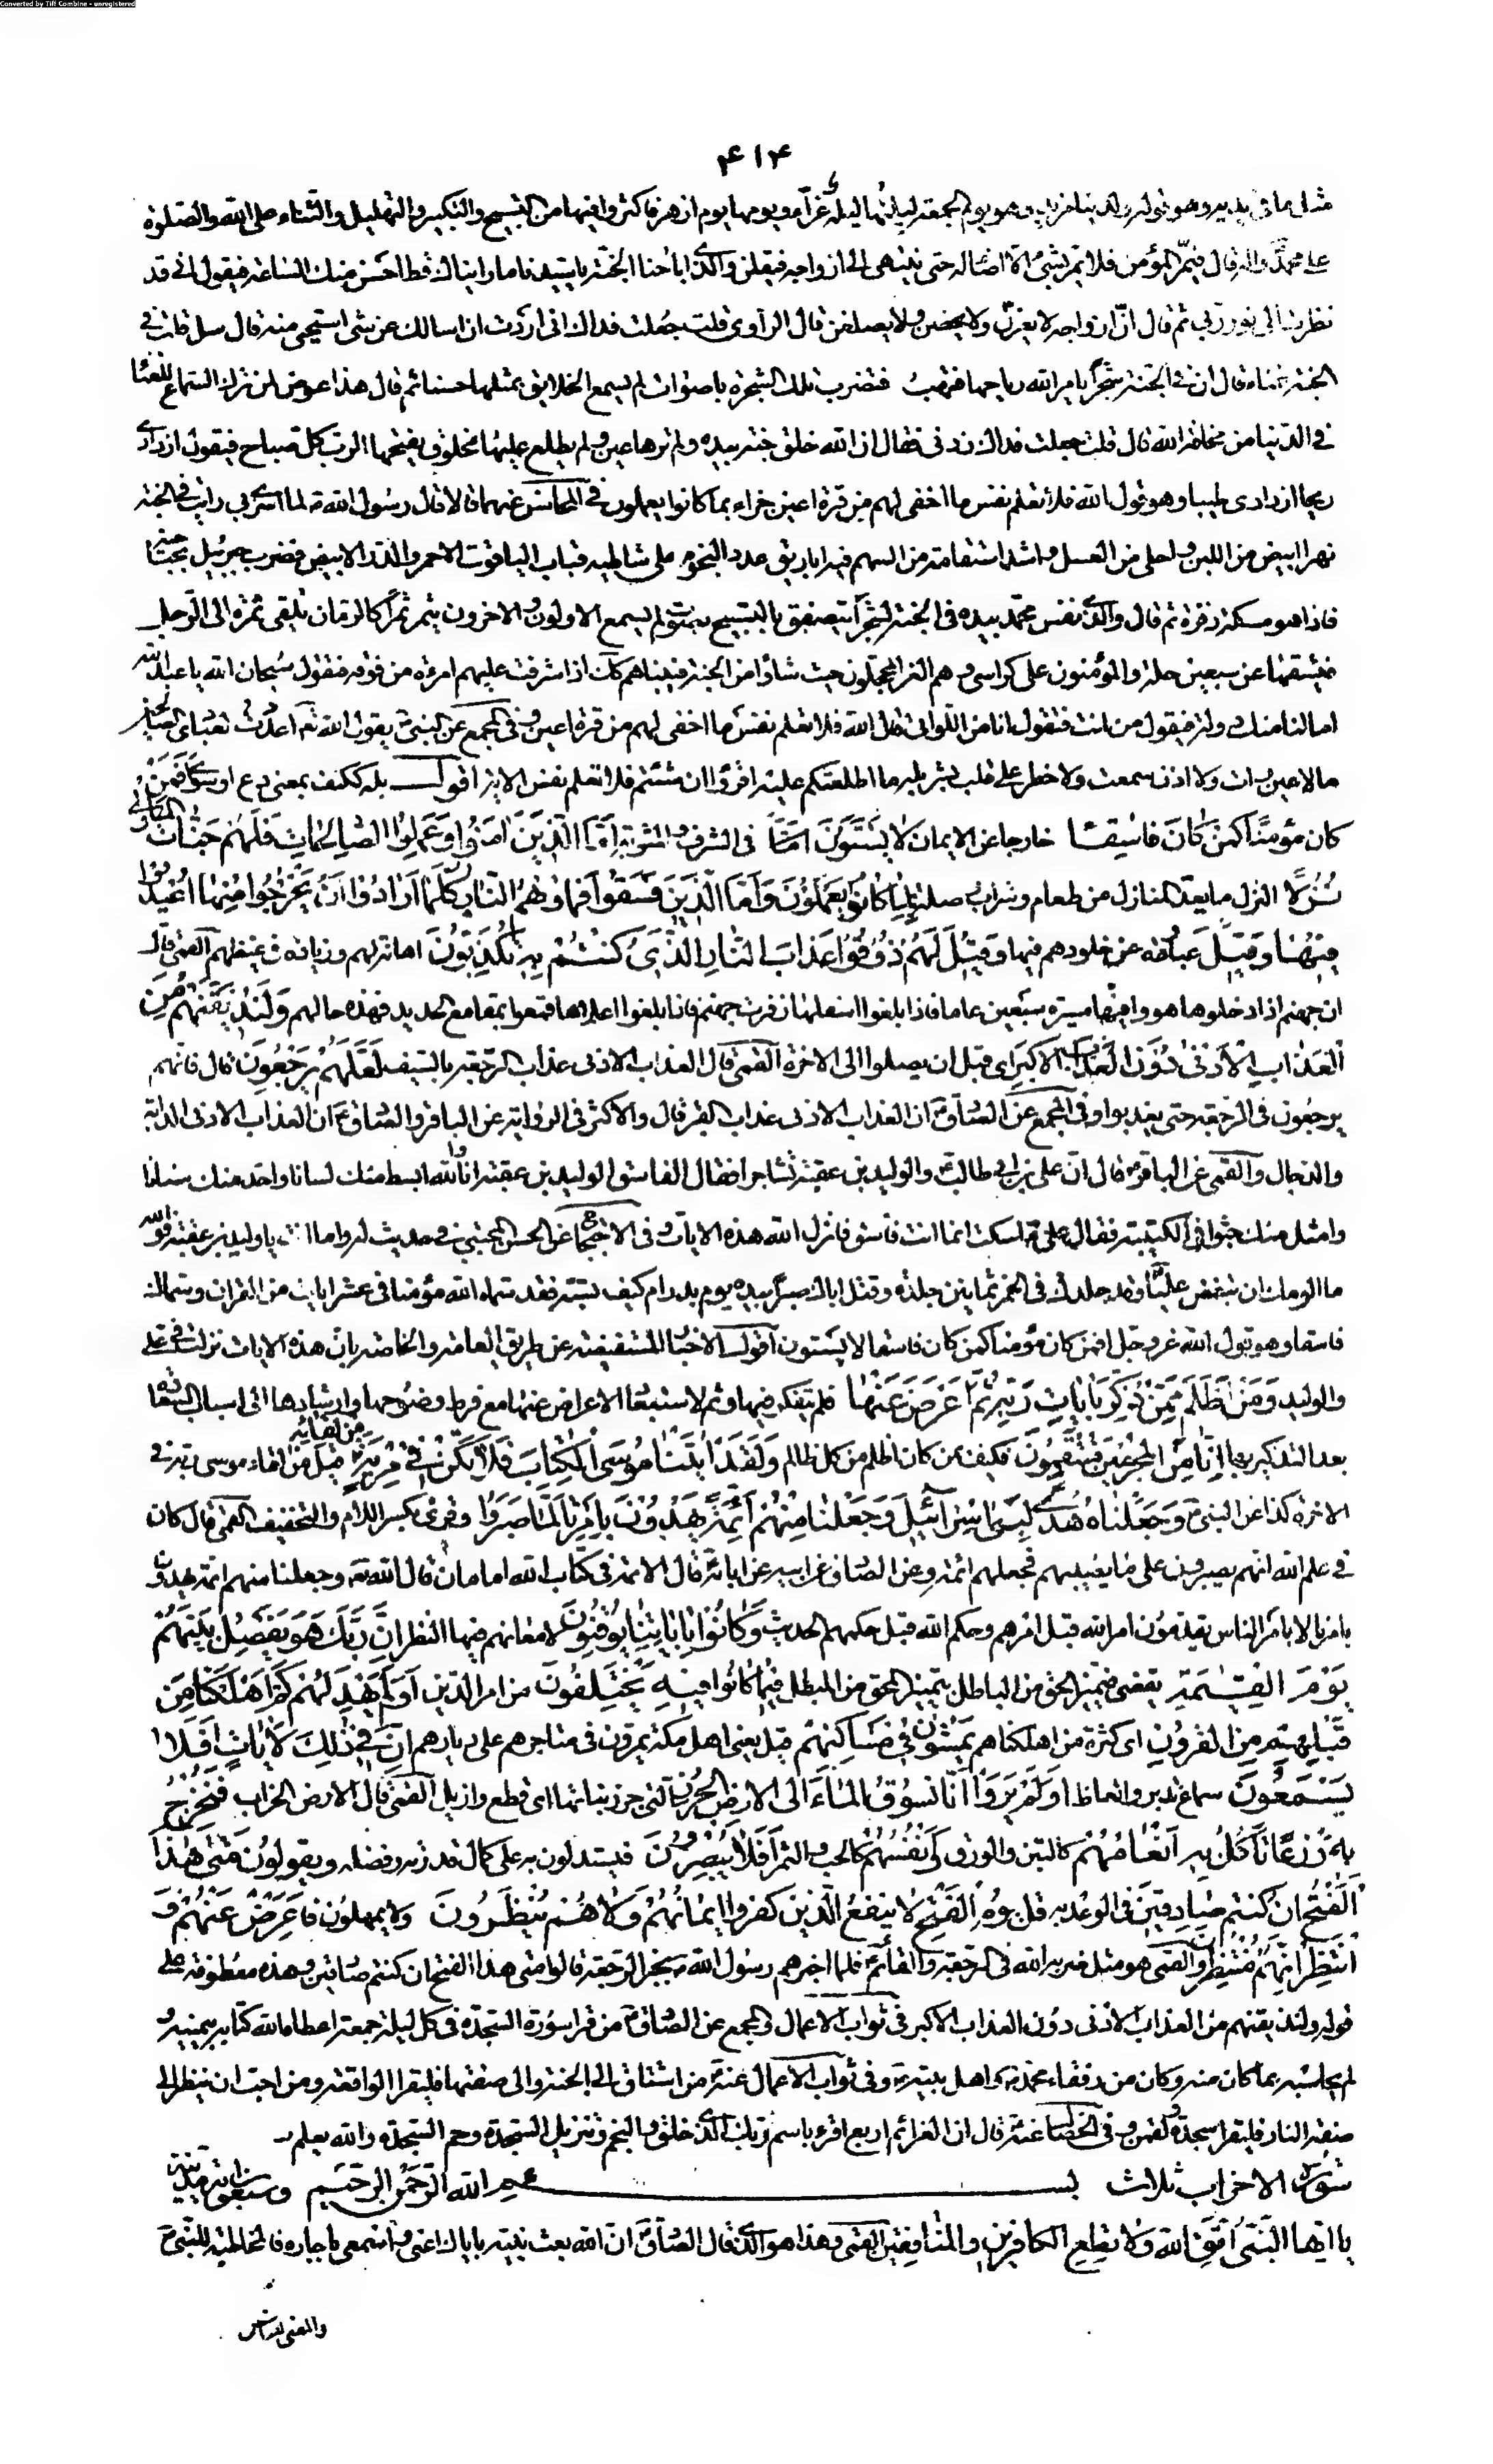 Converted by Tiff Combine - unregistered
۴۱۴
مثل ما في يديه وهو قوله ولدينا مزيد وهو يوم الجمعة ليلتها ليلة غراء ويومها يوم ازهر فاكثروا فيها من التسبيح والتكبير والتهليل والثناء على الله والصلوة
على محمد واله قال فيمر المؤمن فلا يمر بشئ الا اضاء له حتى ينتهى الى ازواجه فيقلن والذى اباحنا الجنة يا سيدنا ما رايناك قط احسن منك الساعة فيقول انى قد
نظرت الى نور ربي ثم قال ان ازواجه لا يغرن ولا يحضن ولا يصلفن قال الراوى قلت جعلت فداك انى اردت ان اسالك عن شئ استحيى منه قال سل قلت في
الجنة غناء قال ان في الجنة شجرا يامر الله رياحها فتهب فتضرب تلك الشجرة باصوات لم يسمع الخلايق بمثلها حسنا ثم قال هذا عوض لمن ترك السماع للغناء
في الدنيا من مخافة الله قال قلت جعلت فداك زدنى فقال ان الله خلق جنة بيده ولم ترها عين ولم يطلع عليها مخلوق يفتحها الرب كل صباح فيقول ازدادى
ريحا ازدادى طيبا وهو قول الله فلا تعلم نفس ما اخفى لهم من قرة اعين جزاء بما كانوا يعملون في المحاسن عنهما قالا قال رسول الله لما اسرى بي رايت في الجنة
نهرا ابيض من اللبن واحلى من العسل واشد استقامة من السهم فيه اباريق عدد النجوم على شاطيه قباب الياقوت الاحمر والدر الابيض فضرب جبرئيل بجناحيه
فاذا هو مسكة ذفرة ثم قال والذى نفس محمد بيده في الجنة لشجرا يتصفق بالتسبيح بصوت لم يسمع الاولون والاخرون يثمر ثمرا كالرمان تلقى ثمرة الى الرجل
فيشقها عن سبعين حلة والمؤمنون على كراسى وهم الغر المحجلون حيث شاؤا من الجنة فبيناهم كك اذ اشرفت عليهم امرءة من فوقه فتقول سبحان الله يا عبد الله
اما لنا منك دولة فيقول من انت فتقول انا من اللواتى قال الله فلا تعلم نفس ما اخفى لهم من قرة اعين وفي المجمع عن النبي يقول الله تع اعددت لعبادى الصالحين
ما لا عين رات ولا اذن سمعت ولا خطر على قلب بشر بله ما اطلعتكم عليه اقرؤا ان شئتم فلا تعلم نفس الاية اقول بله ككيف بمعنى دع او سوى افمن
كان مؤمنا كمن كان فاسقا خارجا عن الايمان لا يستوون في الشرف والمثوبة اما الذين امنوا وعملوا الصالحات فلهم جنات الماوى
نزلا النزل ما يعد للنازل من طعام وشراب وصلة بما كانوا يعملون واما الذين فسقوا فماويهم النار كلما ارادوا ان يخرجوا منها اعيدوا
فيها وقيل عبارة عن خلودهم فيها وقيل لهم ذوقوا عذاب النار الذى كنتم به تكذبون اهانة لهم وزيادة في غيظهم القمى قال
ان جهنم اذا دخلوها هووا فيها مسيرة سبعين عاما فاذا بلغوا اسفلها زفرت بهم جهنم فاذا بلغوا اعلاها قمعوا بمقامع الحديد فهذه حالهم ولنذيقنهم من
العذاب الادنى دون العذاب الاكبر اى قبل ان يصلوا الى الاخرة القمى قال العذاب الادنى عذاب الرجعة بالسيف لعلهم يرجعون قال فانهم
يرجعون في الرجعة حتى يعذبوا وفي المجمع عن الصادق ان العذاب الادنى عذاب القبر قال والاكثر في الرواية عن الباقر والصادق ان العذاب الادنى الدابة
والدجال والقمى عن الباقر قال ان على بن ابي طالب والوليد بن عقبة تشاجرا فقال الفاسق الوليد بن عقبة انا والله ابسط منك لسانا واحد منك سنانا
وامثل منك جثوا في الكتيبة فقال على اسكت انما انت فاسق فانزل الله هذه الايات وفي الاحتجاج عن الحسن المجتبى في حديث له واما انت يا وليد بن عقبة فوالله
ما الومك ان تبغض عليا وقد جلدك في الخمر ثمانين جلدة وقتل اباك صبرا بيده يوم بدر ام كيف تسبه فقد سماه الله مؤمنا في عشر ايات من القران وسماك
فاسقا وهو قول الله عز وجل افمن كان مؤمنا كمن كان فاسقا لا يستوون اقول الاخبار المستفيضة عن طريق العامة والخاصة بان هذه الايات نزلت في على
والوليد ومن اظلم ممن ذكر بايات ربه ثم اعرض عنها فلم يتفكر فيها وثم لاستبعاد الاعراض عنها مع فرط وضوحها وارشادها الى اسباب السعادة
بعد التذكير بها انا من المجرمين منتقمون فكيف من كان اظلم من كل ظالم ولقد اتينا موسى الكتاب فلا تكن في مرية من لقائه قيل من لقاء موسى ربه في
الاخرة كذا عن النبي وجعلناه هدى لبنى اسرائيل وجعلنا منهم ائمة يهدون بامرنا لما صبروا وقرئ بكسر اللام والتخفيف القمى قال كان
في علم الله انهم يصبرون على ما يصيبهم فجعلهم ائمة وعن الصادق عن ابيه عن ابائه قال الائمة في كتاب الله امامان قال الله تع وجعلنا منهم ائمة يهدون
بامرنا لا بامر الناس يقدمون امر الله قبل امرهم وحكم الله قبل حكمهم الحديث وكانوا باياتنا يوقنون لامعانهم فيها النظر ان ربك هو يفصل بينهم
يوم القيمة يقضى فيميز الحق من الباطل بتميز المحق من المبطل فيما كانوا فيه يختلفون من امر الدين اولم يهد لهم كم اهلكنا من
قبلهم من القرون اى كثرة من اهلكناهم يمشون في مساكنهم قيل يعنى اهل مكة يمرون في متاجرهم على ديارهم ان في ذلك لايات افلا
يسمعون سماع تدبر واتعاظ اولم يروا انا نسوق الماء الى الارض الجرز التى جرز نباتها اى قطع وازيل القمى قال الارض الخراب فنخرج
به زرعا تاكل به انعامهم كالتبن والورق وانفسهم كالحب والثمر افلا يبصرون فيستدلون به على كمال قدرته وفضله ويقولون متى هذا
الفتح ان كنتم صادقين في الوعد به قل يوم الفتح لا ينفع الذين كفروا ايمانهم ولا هم ينظرون ولا يمهلون فاعرض عنهم و
انتظر انهم منتظرون القمى هو مثل ضربه الله في الرجعة والقائم فلما اخبرهم رسول الله بخبر الرجعة قالوا متى هذا الفتح ان كنتم صادقين وهذه معطوفة على
قوله ولنذيقنهم من العذاب الادنى دون العذاب الاكبر في ثواب الاعمال والمجمع عن الصادق من قرا سورة السجدة في كل ليلة جمعة اعطاه الله كتابه بيمينه و
لم يحاسبه بما كان منه وكان من رفقاء محمد واهل بيته وفي ثواب الاعمال عنه من اشتاق الى الجنة والى صفتها فليقرا الواقعة ومن احب ان ينظر الى
صفة النار فليقرا سجدة لقمن وفي الخصال عنه قال ان العزائم اربع اقرء باسم ربك الذى خلق والنجم وتنزيل السجدة وحم السجدة والله يعلم
سورة الاحزاب ثلاث بسم الله الرحمن الرحيم وسبعون اية مدنية
يا ايها النبي اتق الله ولا تطع الكافرين والمنافقين القمى وهذا هو الذى قال الصادق ان الله بعث نبيه باياك اعنى واسمعى يا جاره فالمخاطبة للنبي
والمعنى للناس